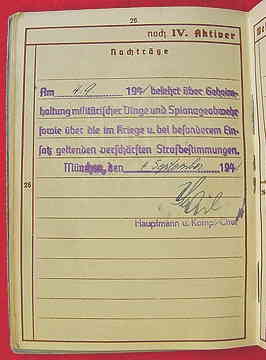 26
noch IV. Aktiver
Nachträge
Am 4.9. 194 belehrt über Geheim-
haltung militärischer Dinge und Spionageabwehr
sowie über die im Kriege u. bei besonderem Ein-
satz geltenden verschärften Strafbestimmungen.
München, den 4. September 194
26
Hauptmann u. Komp.-Chef